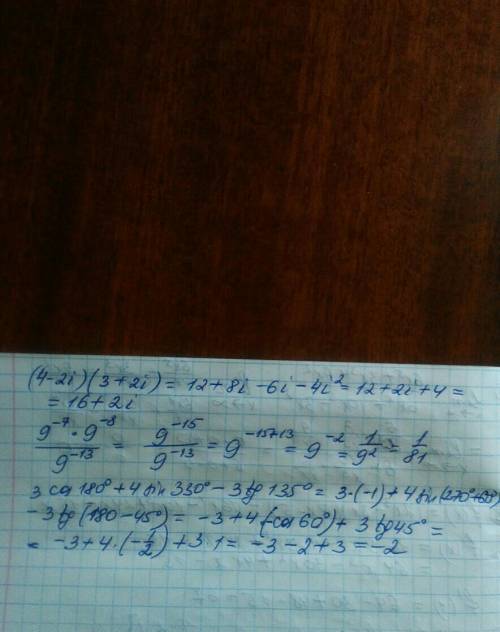 (4-2i)(3+2i) = 12+8i-6i-4i² = 12+2i+4 =
= 16+2i
9⁻⁷·9⁻⁸/9⁻¹³ = 9⁻¹⁵/9⁻¹³ = 9⁻¹⁵⁺¹³ = 9⁻² = 1/9² = 1/81
3 cos 180° + 4 sin 330° - 3 tg 135° = 3·(-1) + 4 sin(270°+60°)
-3 tg (180-45°) = -3+4(-cos 60°) + 3 tg 45° =
= -3+4·(-1/2) + 3·1 = -3-2+3 = -2